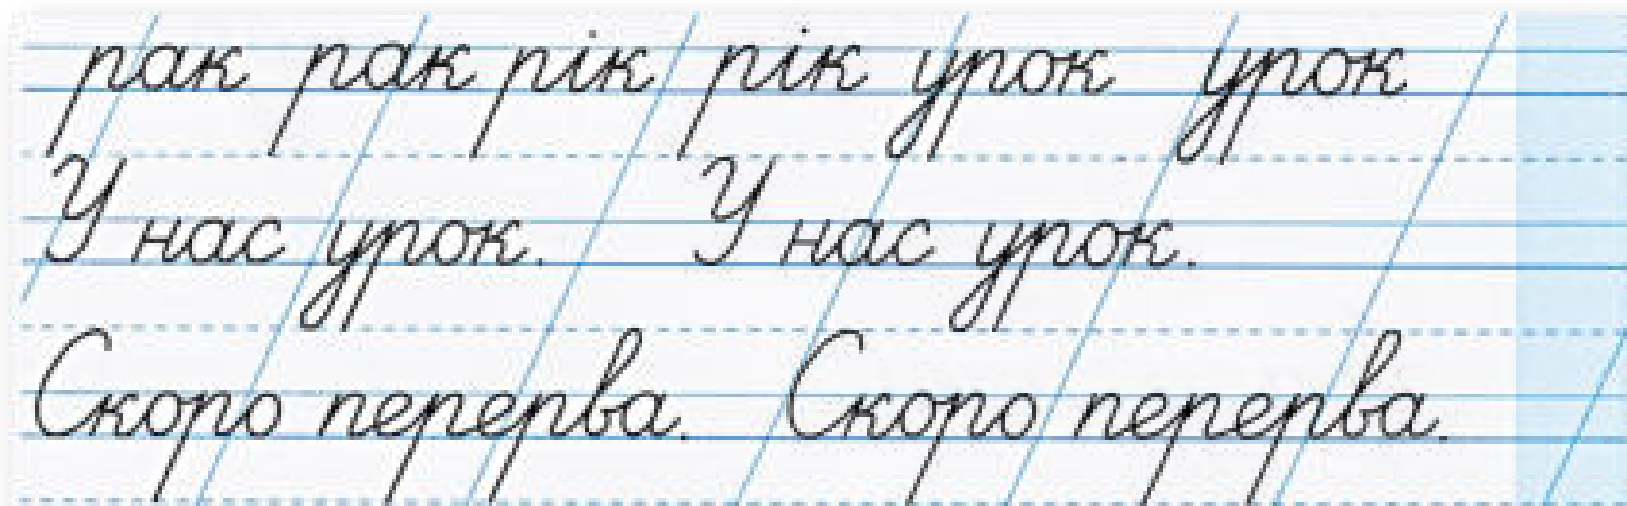 рак рак рік рік урок урок
У нас урок. У нас урок.
Скоро перерва. Скоро перерва.